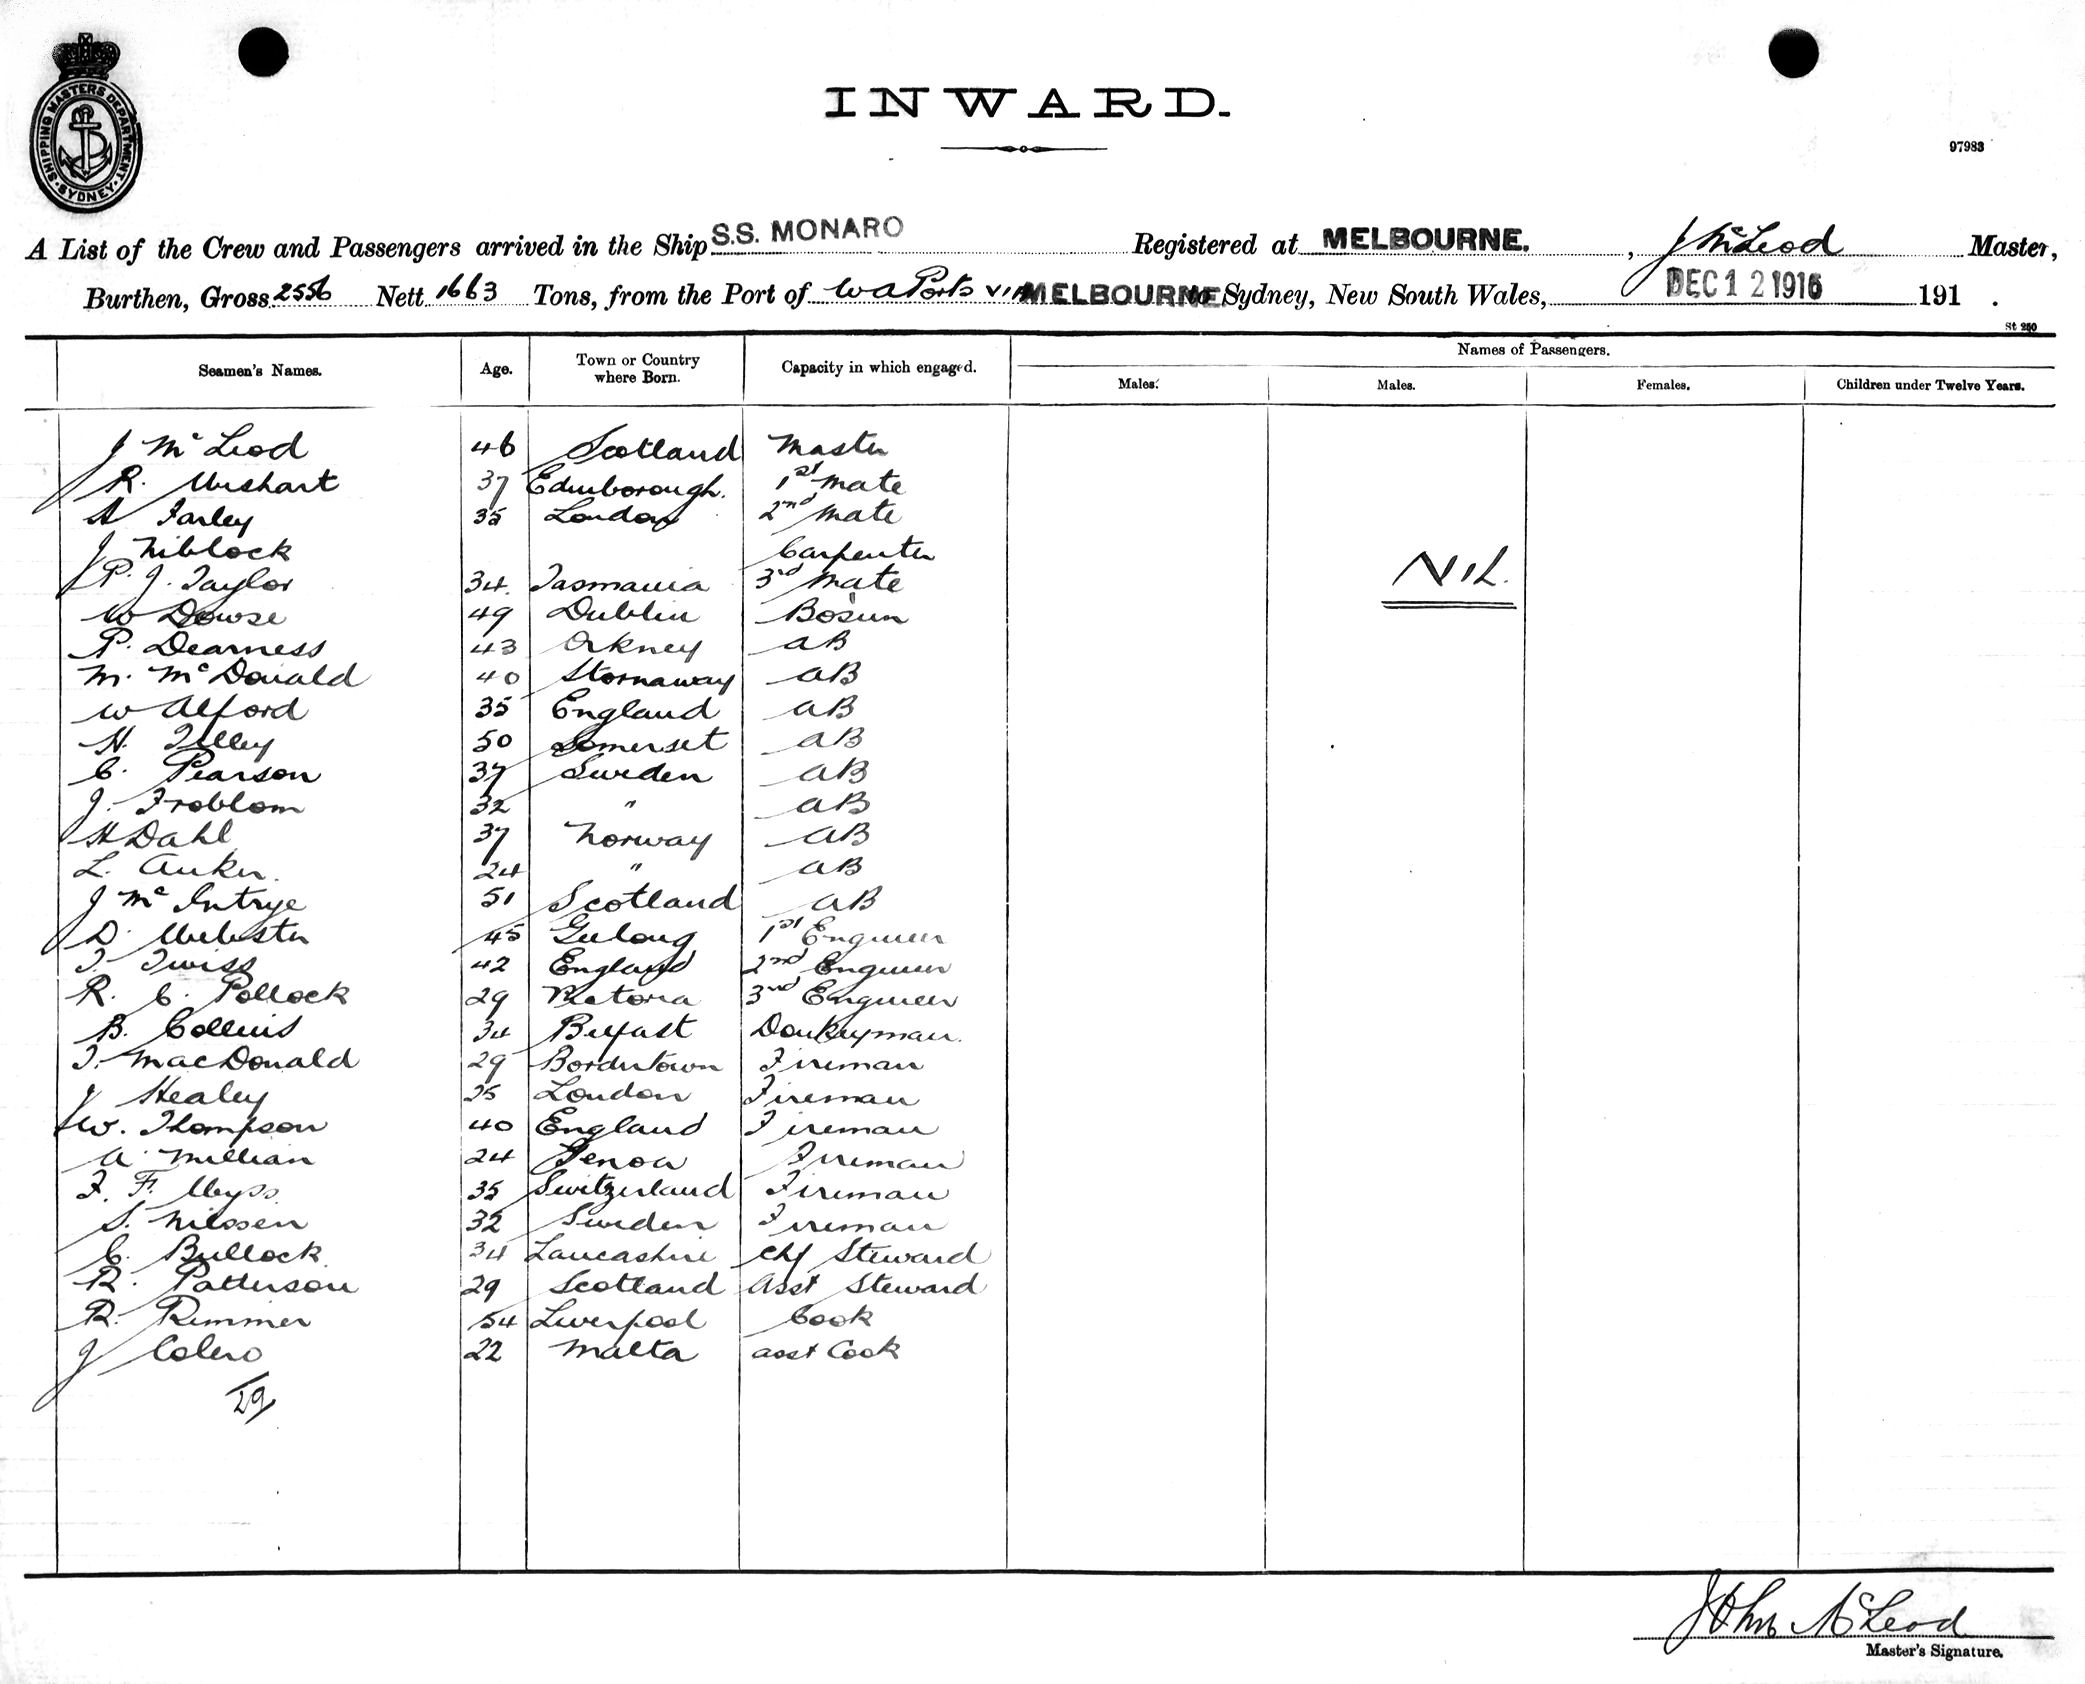 SHIPPING MASTERS DEPARTMENT SYDNEY
INWARD.
97983
A List of the Crew and Passengers arrived in the Ship S.S. MONARO Registered at MELBOURNE. , J McLeod Master,
Burthen, Gross 2556 Nett 1663 Tons, from the Port of W A Ports via MELBOURNE to Sydney, New South Wales, DEC 12 1916 191 .
St 250
Seamen's Names. Age. Town or Country where Born. Capacity in which engaged. Names of Passengers.
Males. Males. Females. Children under Twelve Years.
J McLeod 46 Scotland Master
R. Urishart 37 Edinborough. 1st Mate
A Farley 35 London 2nd Mate
J Niblock Carpenter
P. J. Taylor 34. Tasmania 3rd Mate
NIL.
W Dowse 49 Dublin Bosun
P. Dearness 43 Orkney AB
M. McDonald 40 Stornaway AB
W Alford 35 England AB
H. Tilley 50 Somerset AB
C. Pearson 37 Sweden AB
J. Froblom 32 " AB
H Dahl 37 Norway AB
L. Anker. 24 " AB
J McIntrye 51 Scotland AB
D. Webster 45 Geelong 1st Engineer
T. Twiss 42 England 2nd Engineer
R. C. Pollock 29 Victoria 3rd Engineer
B. Collins 34 Belfast Donkeyman.
T. MacDonald 29 Bordertown Fireman
J Healey 25 London Fireman
W. Thompson 40 England Fireman
A. Millian 24 Genoa Fireman
F. F. Wyss. 35 Switzerland Fireman
S. Nilssen 32 Sweden Fireman
C. Bullock 34 Lancashire Chf Steward
R. Patterson 29 Scotland Asst Steward
R. Rimmer 54 Liverpool Cook
J Calero 22 Malta asst Cook
29
John McLeod
Master's Signature.